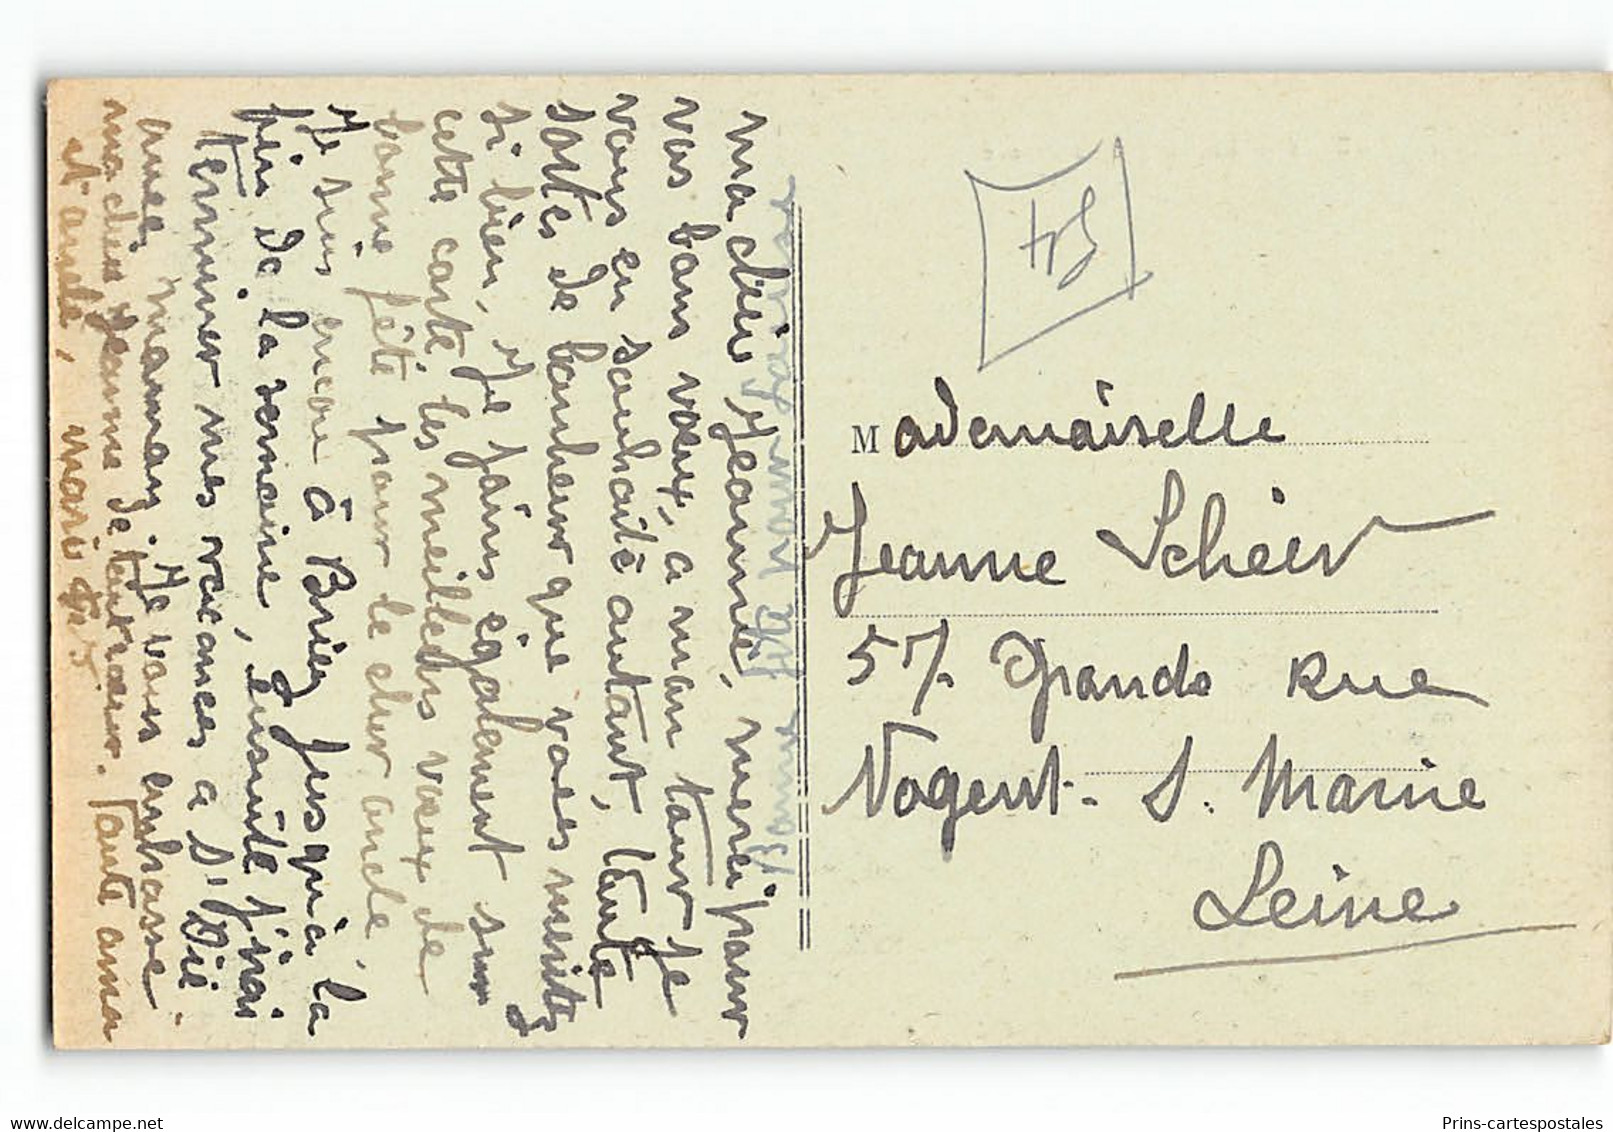 Bonne fête
ma chère Jeanne, merci pour
vos bons vœux, a mon tour je
vous en souhaite autant, toute
sortes de bonheur que vous meritez
si bien, Je joins également sur
cette carte, les meilleurs vœux de
bonne fête pour le cher oncle,
Je suis encore à Briey jusqu'à la
fin de la semaine, ensuite j'irai
terminer mes vacances a St Dié
avec maman. Je vous embrasse
ma chère Jeanne de tout cœur. Toute ama
Mademaiselle
Jeanne Scheer
57. Grande Rue
Nogent. S. Marne
Seine
delcampe.net
Prins-cartespostales